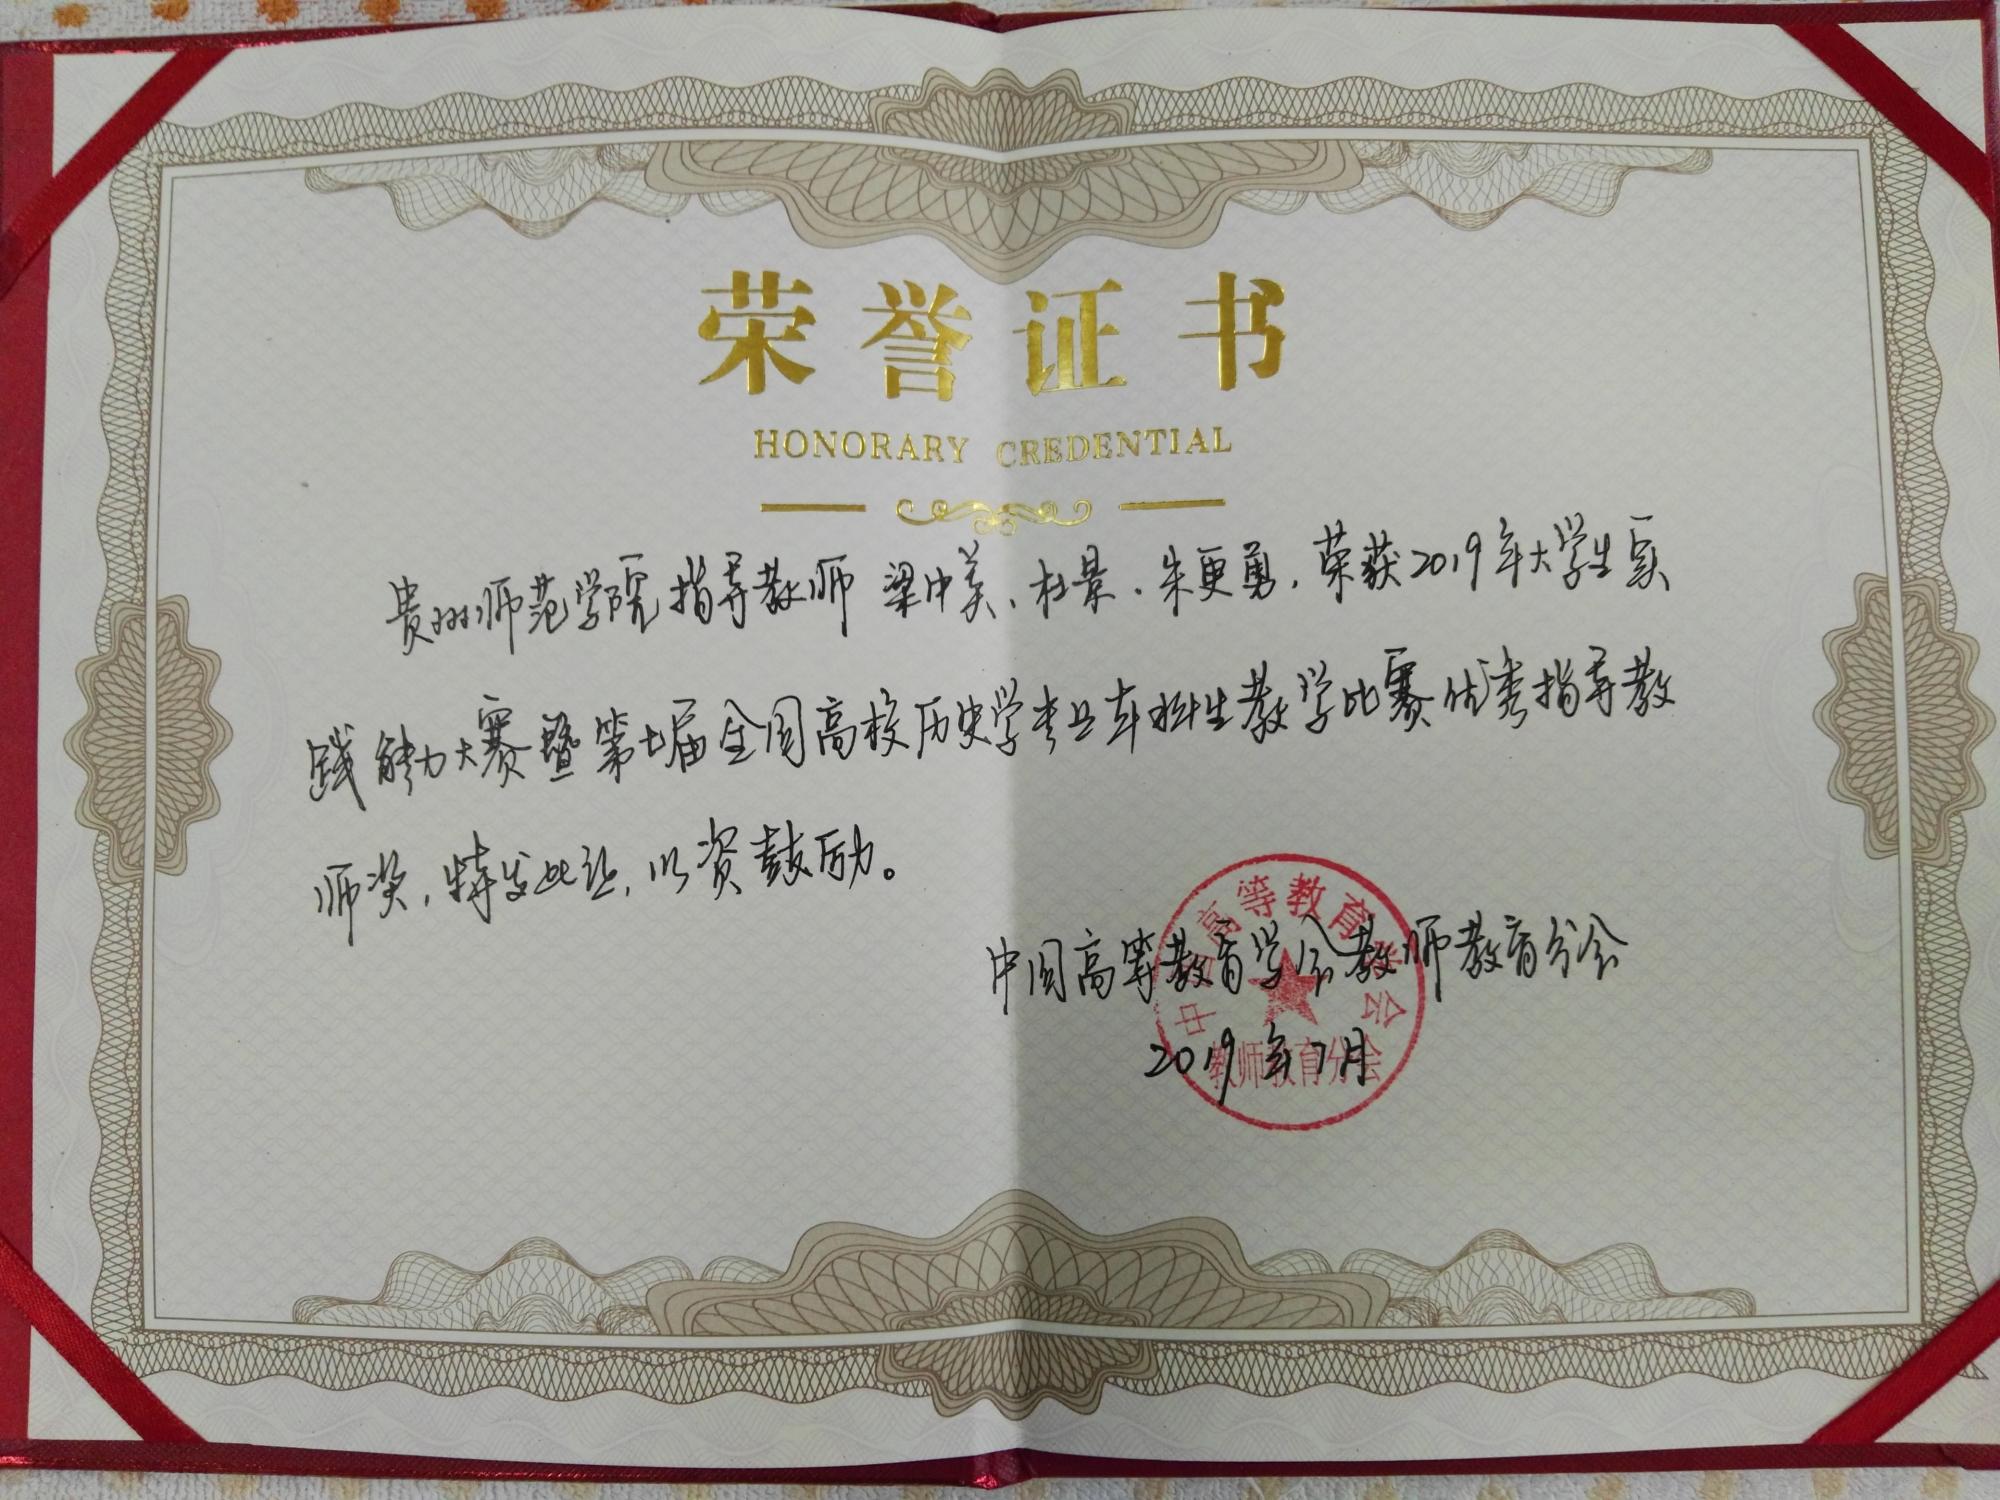 荣誉证书
HONORARY CREDENTIAL
贵州师范学院指导教师 梁中美、杜景、朱更勇，荣获2019年大学生实
践能力大赛暨第七届全国高校历史学专业本科生教学比赛优秀指导教
师奖，特发此证，以资鼓励。
中国高等教育学会教师教育分会
2019年7月
中国高等教育学会
教师教育分会